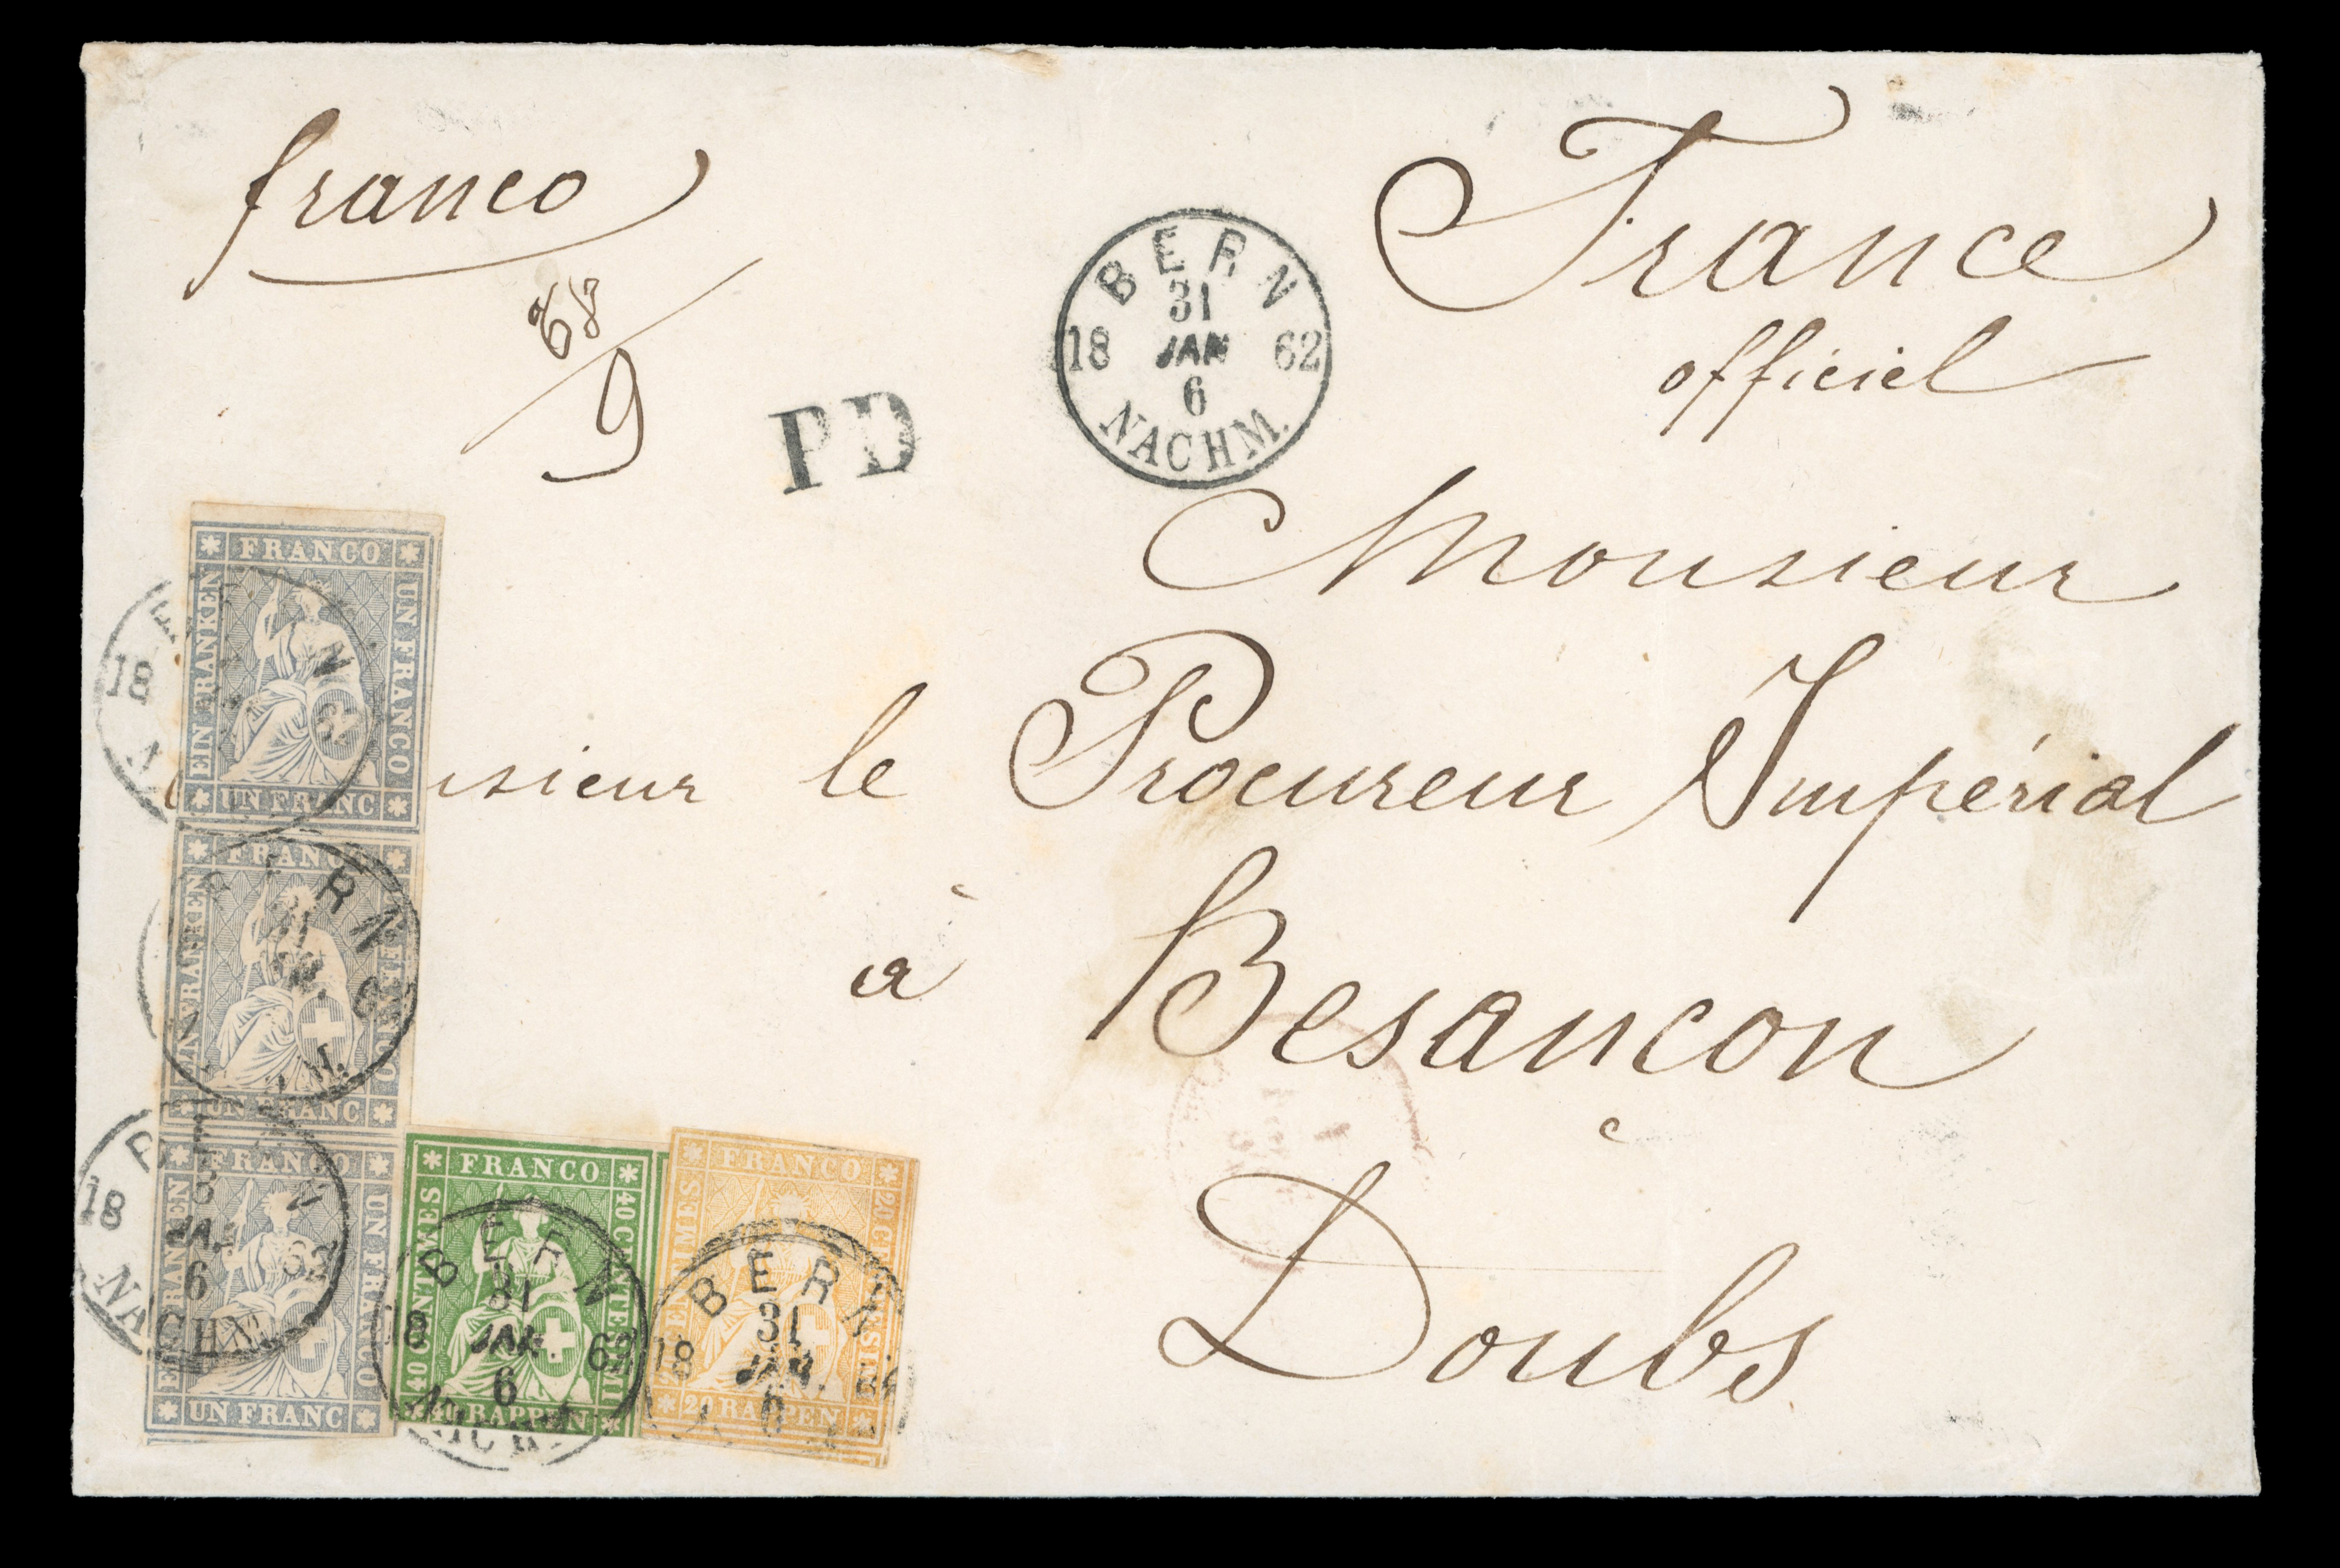 franco
France
officiel
68
9
PD
BERN
31
18 JAN 62
6
NACHM.
Monsieur
sieur le Procureur Impérial
à Besançon
Doubs
FRANCO
EIN FRANKEN
UN FRANCO
UN FRANC
18 N
FRANCO
EIN FRANKEN
UN FRANC
BERN
FRANCO
UN FRANCO
UN FRANC
18 JAN 62
6
NACHM.
FRANCO
40 CENTIMES
40 CENTESIMI
40 RAPPEN
BERN
31
18 JAN. 62
6
FRANCO
20 CENTIMES
20 RAPPEN
BERN
31
18 JAN.
6